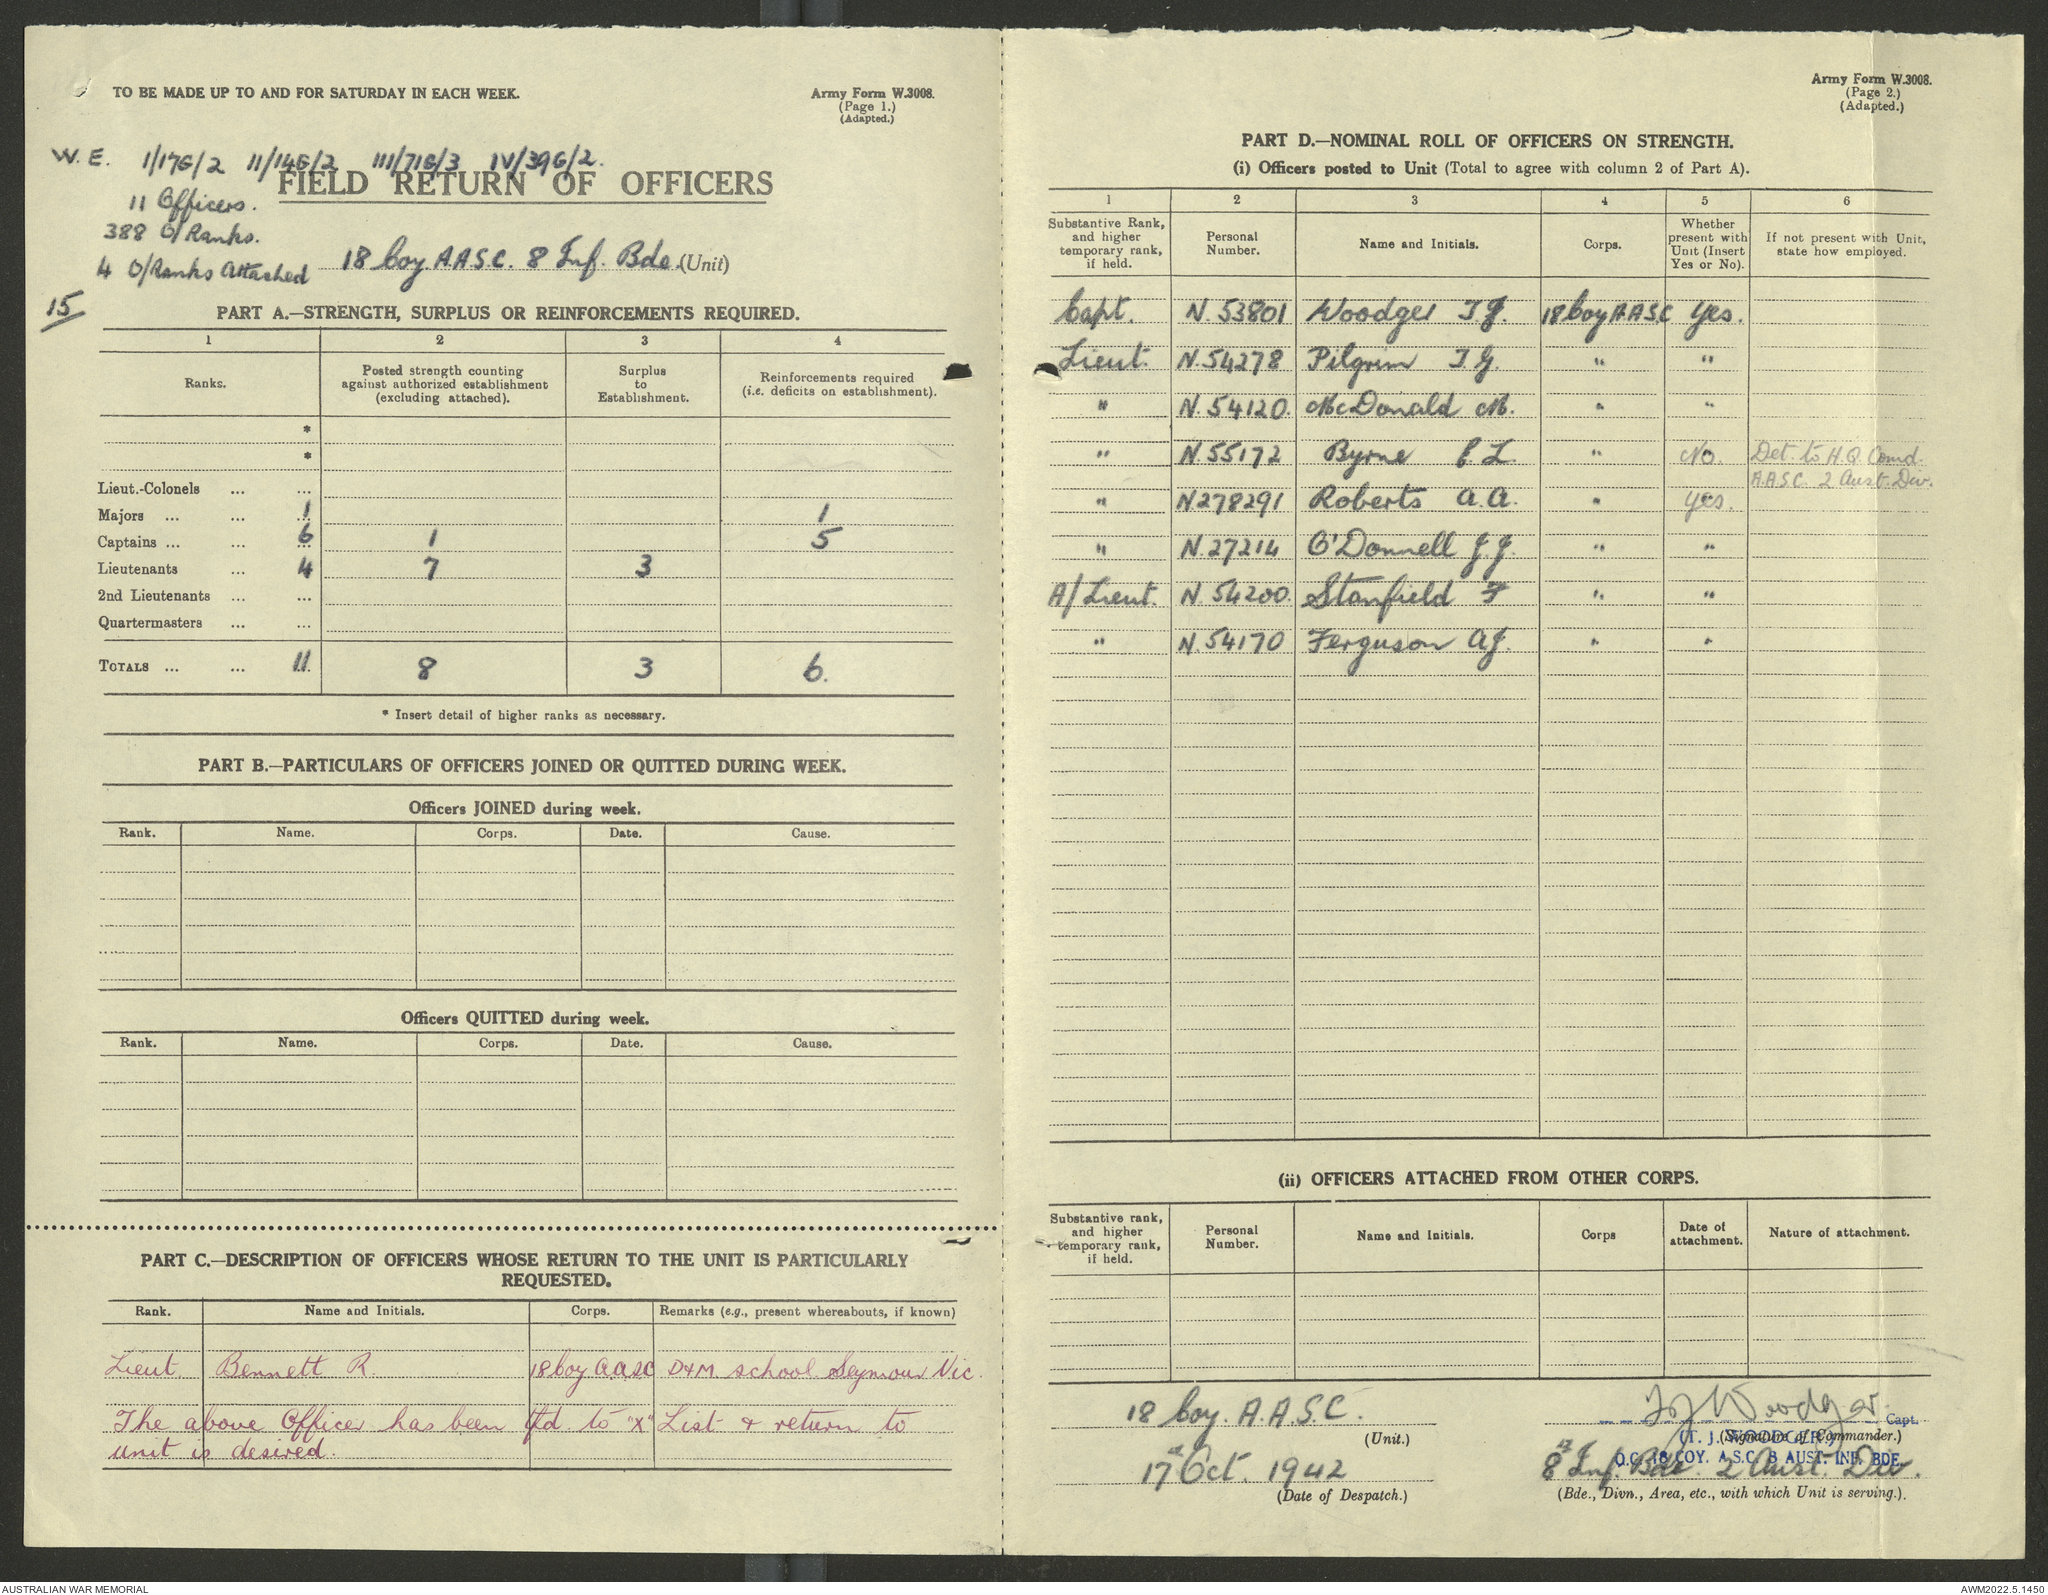 TO BE MADE UP TO AND FOR SATURDAY IN EACH WEEK.
Army Form W.3008.
(Page 1.)
(Adapted.)
W.E. I/17G/2 II/14G/2 III/71G/3 IV/39G/2.
FIELD RETURN OF OFFICERS
11 Officers.
388 O/Ranks.
4 O/Ranks Attached
18 Coy A.A.S.C. 8 Inf. Bde. (Unit)
15
PART A.—STRENGTH, SURPLUS OR REINFORCEMENTS REQUIRED.
1 2 3 4
Ranks. Posted strength counting against authorized establishment (excluding attached). Surplus to Establishment. Reinforcements required (i.e. deficits on establishment).
*
*
Lieut.-Colonels ... ...
Majors ... ... 1 1
Captains ... ... 6 1 5
Lieutenants ... 4 7 3
2nd Lieutenants ... ...
Quartermasters ... ...
TOTALS ... ... 11. 8 3 6.
* Insert detail of higher ranks as necessary.
PART B.—PARTICULARS OF OFFICERS JOINED OR QUITTED DURING WEEK.
Officers JOINED during week.
Rank. Name. Corps. Date. Cause.
Officers QUITTED during week.
Rank. Name. Corps. Date. Cause.
PART C.—DESCRIPTION OF OFFICERS WHOSE RETURN TO THE UNIT IS PARTICULARLY
REQUESTED.
Rank. Name and Initials. Corps. Remarks (e.g., present whereabouts, if known)
Lieut. Bennett R. 18 Coy AASC D&M. school Seymour Vic.
The above Officer has been tfd to "X" List & return to
unit is desired.
Army Form W.3008.
(Page 2.)
(Adapted.)
PART D.—NOMINAL ROLL OF OFFICERS ON STRENGTH.
(i) Officers posted to Unit (Total to agree with column 2 of Part A).
1 2 3 4 5 6
Substantive Rank, and higher temporary rank, if held. Personal Number. Name and Initials. Corps. Whether present with Unit (Insert Yes or No). If not present with Unit, state how employed.
Capt. N. 53801 Woodger T J. 18 Coy A.A.S.C Yes.
Lieut. N. 54278 Pilgrim T. G. " "
" N. 54120. McDonald M. " "
" N. 55172 Byrne E. L. " No. Det. to H.Q. Comd.
A.A.S.C. 2 Aust. Div.
" N278291 Roberts A. A. " Yes.
" N. 27214 O'Donnell J. J. " "
A/Lieut. N. 54200. Stanfield F " "
" N. 54170 Ferguson A J. " "
(ii) OFFICERS ATTACHED FROM OTHER CORPS.
Substantive rank, and higher temporary rank, if held. Personal Number. Name and Initials. Corps Date of attachment. Nature of attachment.
18 Coy. A.A.S.C.
(Unit.)
17 Oct. 1942
(Date of Despatch.)
T J Woodger Capt.
(T. J. WOODGER)
(Signature of Commander.)
O.C. 18 COY. A.S.C. 8 AUST. INF. BDE.
8 Inf. Bde. 2 Aust. Div.
(Bde., Divn., Area, etc., with which Unit is serving.).
AUSTRALIAN WAR MEMORIAL
AWM2022.5.1450